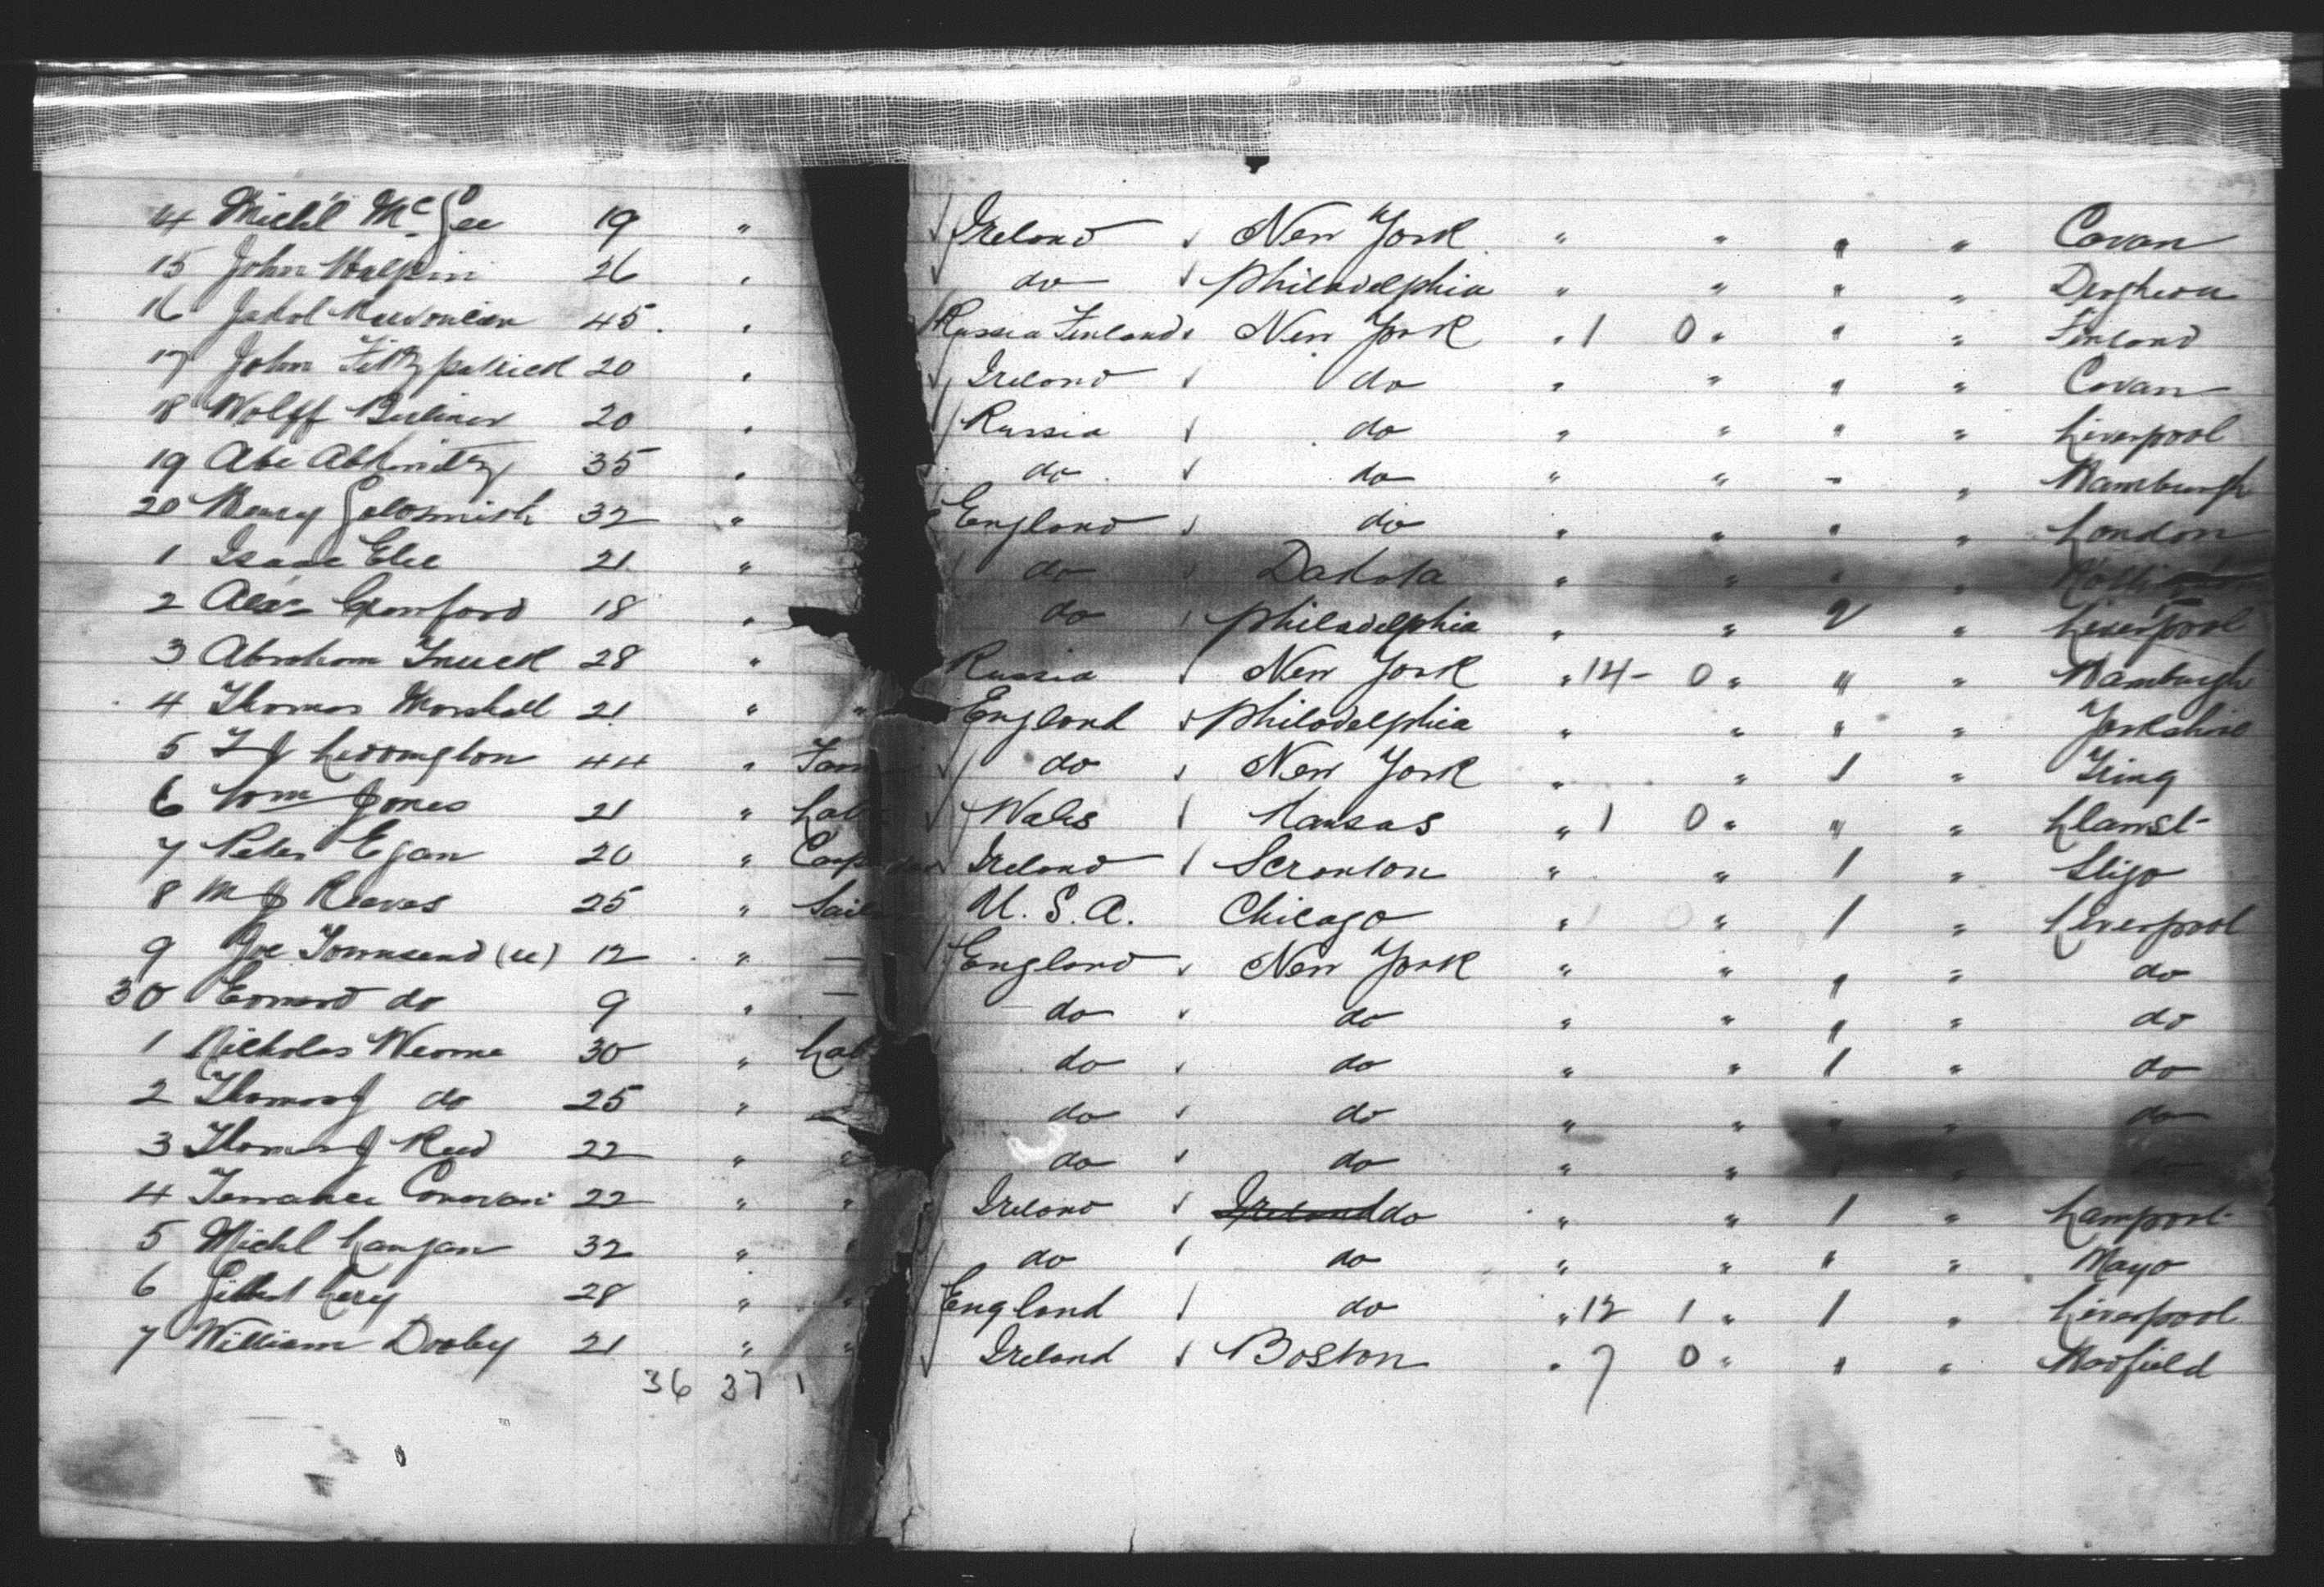 14 Michl McGee 19 " Ireland New York " " " " Cavan
15 John Halpin 26 " do Philadelphia " " " "
16 45 " Russia Finland New York " 1 0 " " " Finland
17 John Fittzpatrick 20 " Ireland do " " " " Cavan
18 Wolff Berliner 20 " Russia do " " " " Liverpool
19 Abe 35 " do do " " " " Hamburgh
20 Henry Goldsmith 32 " England do " " " " London
1 Isaac 21 " do Dakota " " " "
2 Alex Crawford 18 " do Philadelphia " " " Liverpool
3 Abraham 28 " Russia New York " 14 - 0 " " " Hamburgh
4 Thomas Marshall 21 " " England Philadelphia " " " " Yorkshire
5 T J Liddington 44 " Farm do New York " " 1 " Tring
6 Wm Jones 21 " Lab Wales Kansas " 1 0 " " " Llanst-
7 Peter Egan 20 " Carp Ireland Scranton " " 1 " Sligo
8 M J Reeves 25 " Sail U. S. A. Chicago " " 1 " Liverpool
9 Joe Townsend 12 " — England New York " " " " do
30 Edward do 9 " — do do " " " " do
1 Nicholas 30 " Lab do do " " 1 " do
2 Thomas J do 25 " do do " " " " do
3 Thomas J Reed 22 " " do do " " " " do
4 Terrance 22 " " Ireland Ireland do " " 1 "
5 Michl Langan 32 " " do do " " " " Mayo
6 28 " " England do " 12 1 " 1 " Liverpool
7 William Dooley 21 " " Ireland Boston " 7 0 " " "
36 37 1